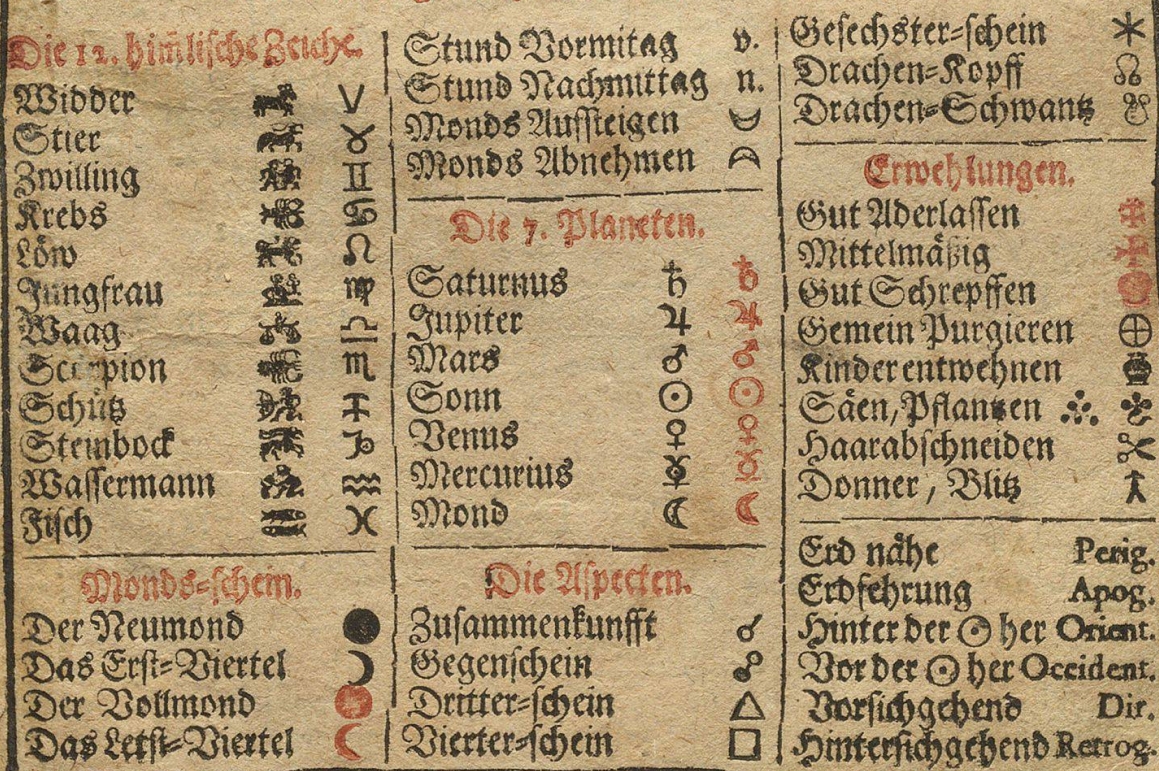 Die 12. him̃lische Zeiche.
Widder ♈
Stier ♉
Zwilling ♊
Krebs ♋
Löw ♌
Jungfrau ♍
Waag ♎
Scorpion ♏
Schütz ♐
Steinbock ♑
Wassermann ♒
Fisch ♓
Monds-schein.
Der Neumond
Das Erst-Viertel
Der Vollmond
Das Letst-Viertel
Stund Vormitag v.
Stund Nachmittag n.
Monds Auffsteigen
Monds Abnehmen
Die 7. Planeten.
Saturnus ♄ ♄
Jupiter ♃ ♃
Mars ♂ ♂
Sonn ☉ ☉
Venus ♀ ♀
Mercurius ☿ ☿
Mond ☾ ☾
Die Aspecten.
Zusammenkunfft ☌
Gegenschein ☍
Dritter-schein △
Vierter-schein □
Gesechster-schein ⚹
Drachen-Kopff ☊
Drachen-Schwantz ☋
Erwehlungen.
Gut Aderlassen
Mittelmäßig
Gut Schrepffen
Gemein Purgieren
Kinder entwehnen
Säen, Pflantzen
Haarabschneiden
Donner, Blitz
Erd nähe Perig.
Erdfehrung Apog.
Hinter der ☉ her Orient.
Vor der ☉ her Occident.
Vorsichgehend Dir.
Hintersichgehend Retrog.